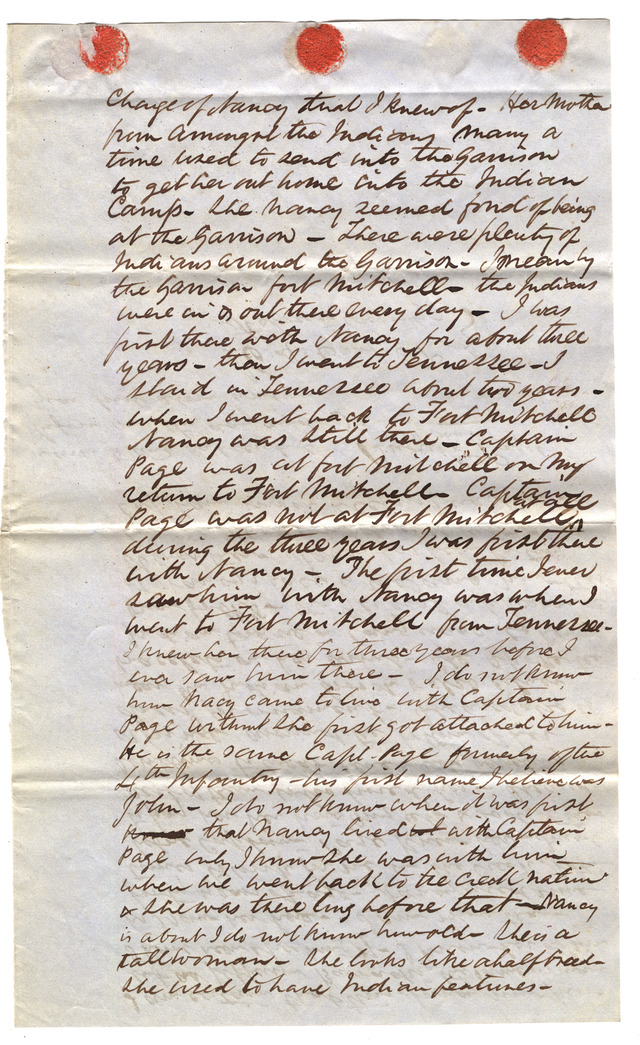 Charge of Nancy that I knew of - Her Mother
from amongst the Indians many a
time used to send into the Garrison
to get her out home into the Indian
Camp - She Nancy seemed fond of being
at the Garrison - There were plenty of
Indians around the Garrison - I mean by
the Garrison fort Mitchell - the Indians
were in & out there every day - I was
first there with Nancy for about three
years - then I went to Tennessee - I
staid in Tennessee about two years -
when I went back to Fort Mitchell
Nancy was still there - Captain
Page was at fort Mitchell on my
return to Fort Mitchell - Captain
Page was not at Fort Mitchell
during the three years I was first there
with Nancy - The first time I ever
saw him with Nancy was when I
went to Fort Mitchell from Tennessee -
I knew her there for three years before I
ever saw him there - I do not know
how Nacy came to live with Captain
Page without She first got attached to him -
He is the same Capt. Page formerly of the
4th Infantry - his first name I believe was
John - I do not know when it was first
that Nancy lived with Captain
Page only I know She was with him
when we went back to the Creek nation
& She was there long before that - Nancy
is about I do not know how old - She is a
tall woman - She looks like a half breed -
She used to have Indian features -